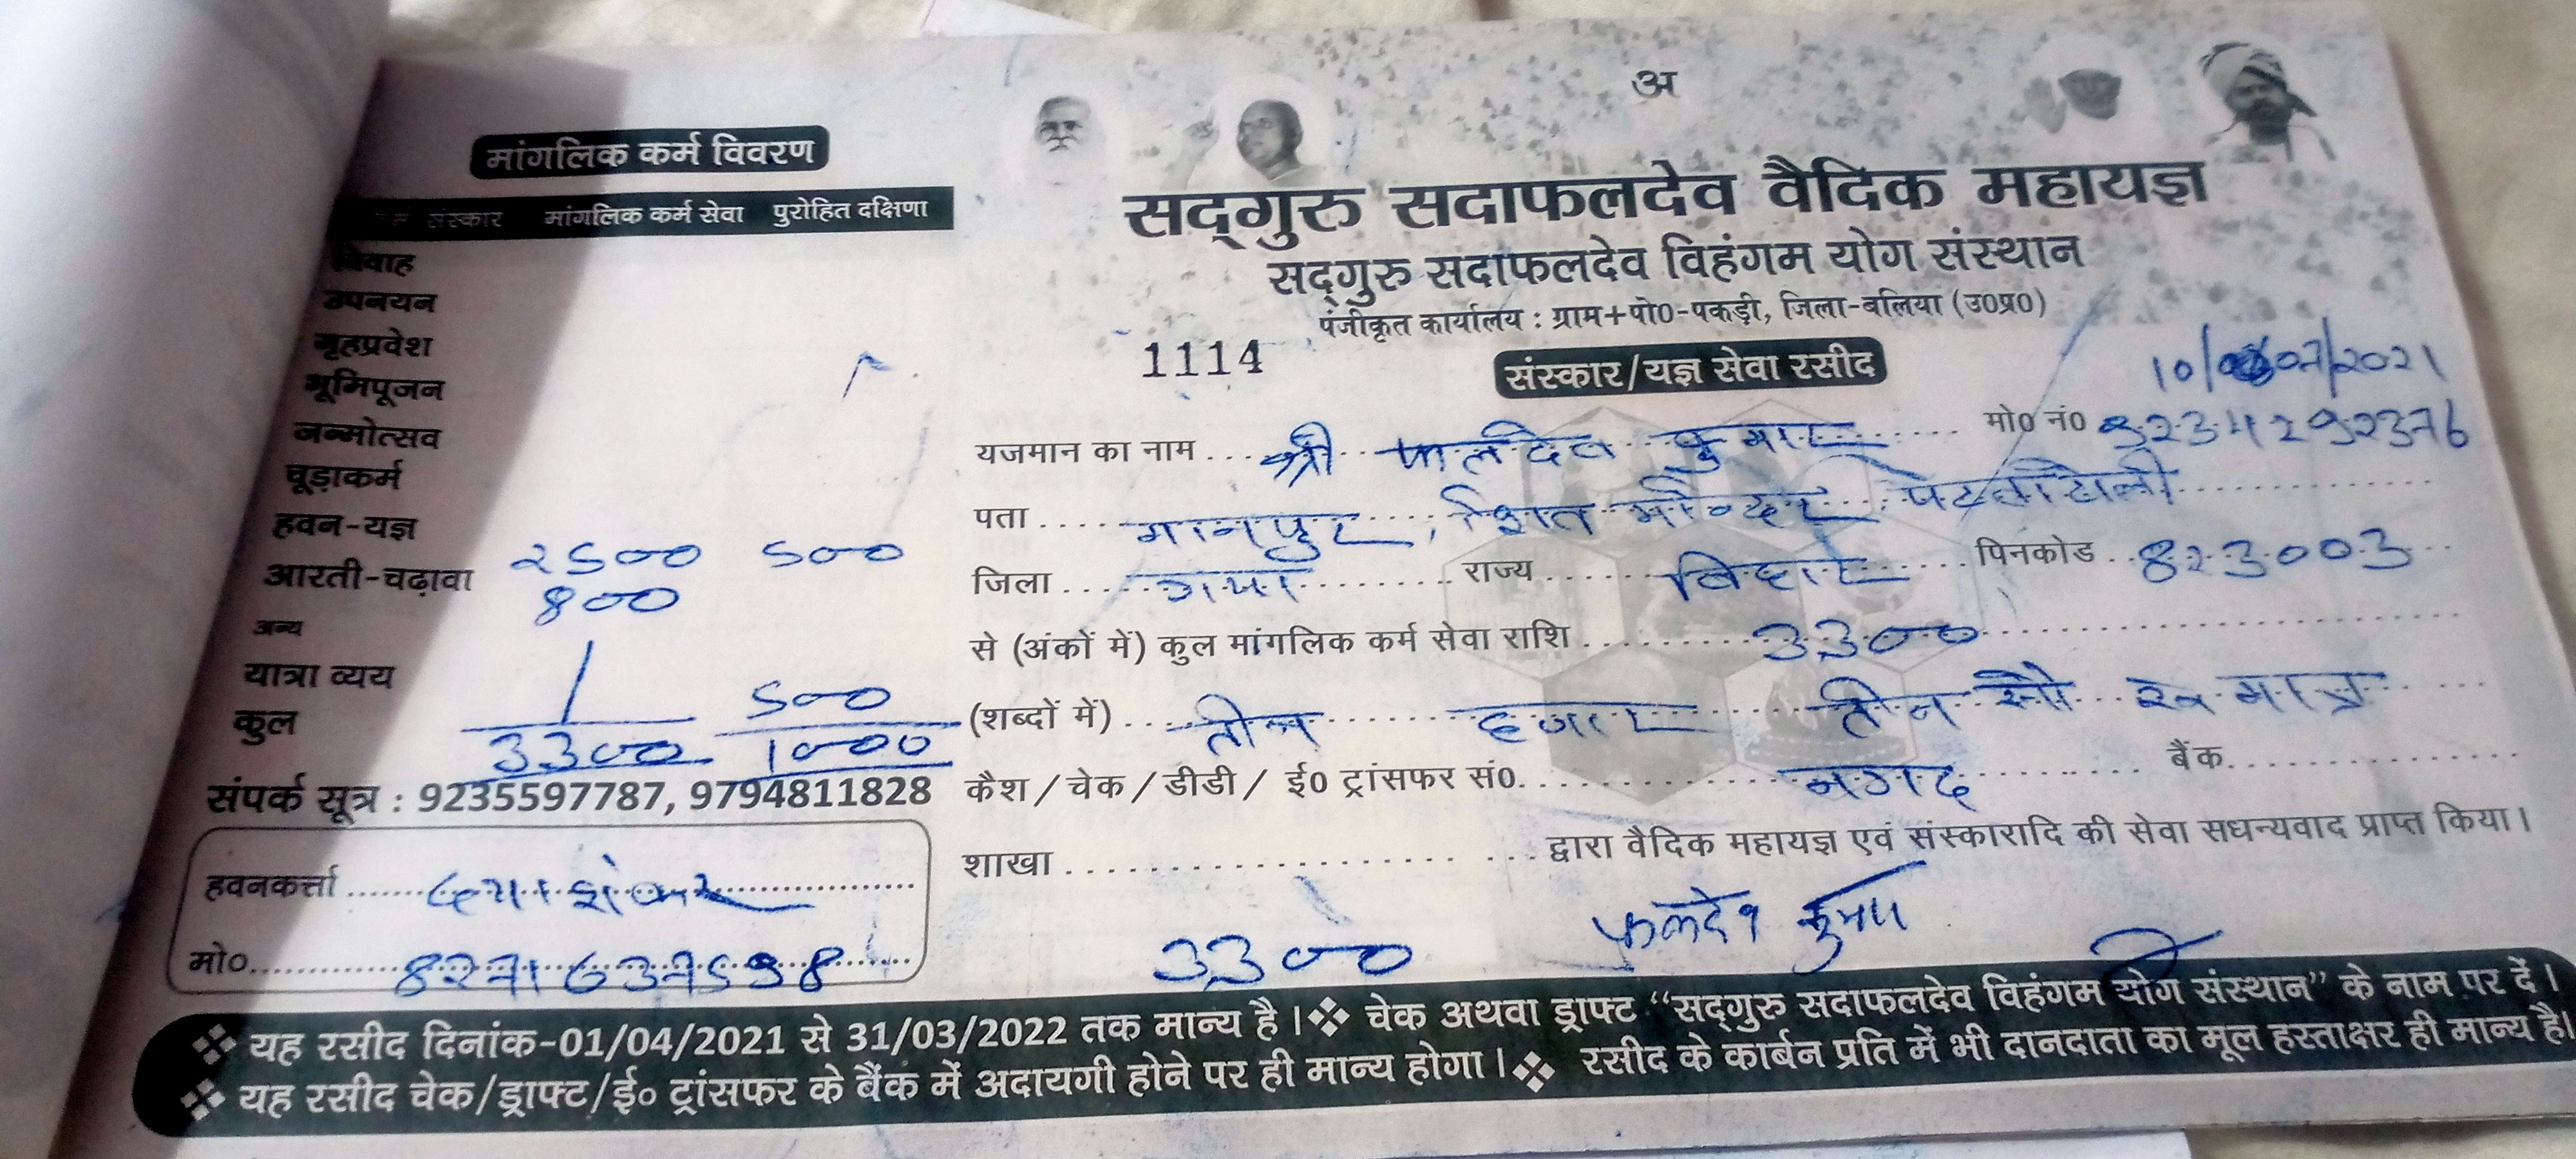 अ
मांगलिक कर्म विवरण
संस्कार मांगलिक कर्म सेवा पुरोहित दक्षिणा
विवाह
उपनयन
गृहप्रवेश
भूमिपूजन
जन्मोत्सव
चूड़ाकर्म
हवन-यज्ञ 2500 500
आरती-चढ़ावा 800
अन्य
यात्रा व्यय 500
कुल 3300 1000
संपर्क सूत्र : 9235597787, 9794811828
हवनकर्त्ता दयाशंकर
मो०
सद्गुरु सदाफलदेव वैदिक महायज्ञ
सद्गुरु सदाफलदेव विहंगम योग संस्थान
पंजीकृत कार्यालय : ग्राम+पो0-पकड़ी, जिला-बलिया (उ0प्र0)
1114 संस्कार/यज्ञ सेवा रसीद 10/07/2021
यजमान का नाम श्री फलदेव कुमार मो0 नं0
पता मानपुर, शिव मन्दिर
जिला गया राज्य बिहार पिनकोड 823003
से (अंकों में) कुल मांगलिक कर्म सेवा राशि 3300
(शब्दों में) तीन हजार तीन सौ रू मात्र
कैश / चेक / डीडी / ई0 ट्रांसफर सं0. नगद बैंक
शाखा द्वारा वैदिक महायज्ञ एवं संस्कारादि की सेवा सधन्यवाद प्राप्त किया।
3300 फलदेव कुमार
❖ यह रसीद दिनांक-01/04/2021 से 31/03/2022 तक मान्य है। ❖ चेक अथवा ड्राफ्ट “सद्गुरु सदाफलदेव विहंगम योग संस्थान” के नाम पर दें।
❖ यह रसीद चेक/ड्राफ्ट/ई० ट्रांसफर के बैंक में अदायगी होने पर ही मान्य होगा। ❖ रसीद के कार्बन प्रति में भी दानदाता का मूल हस्ताक्षर ही मान्य है।